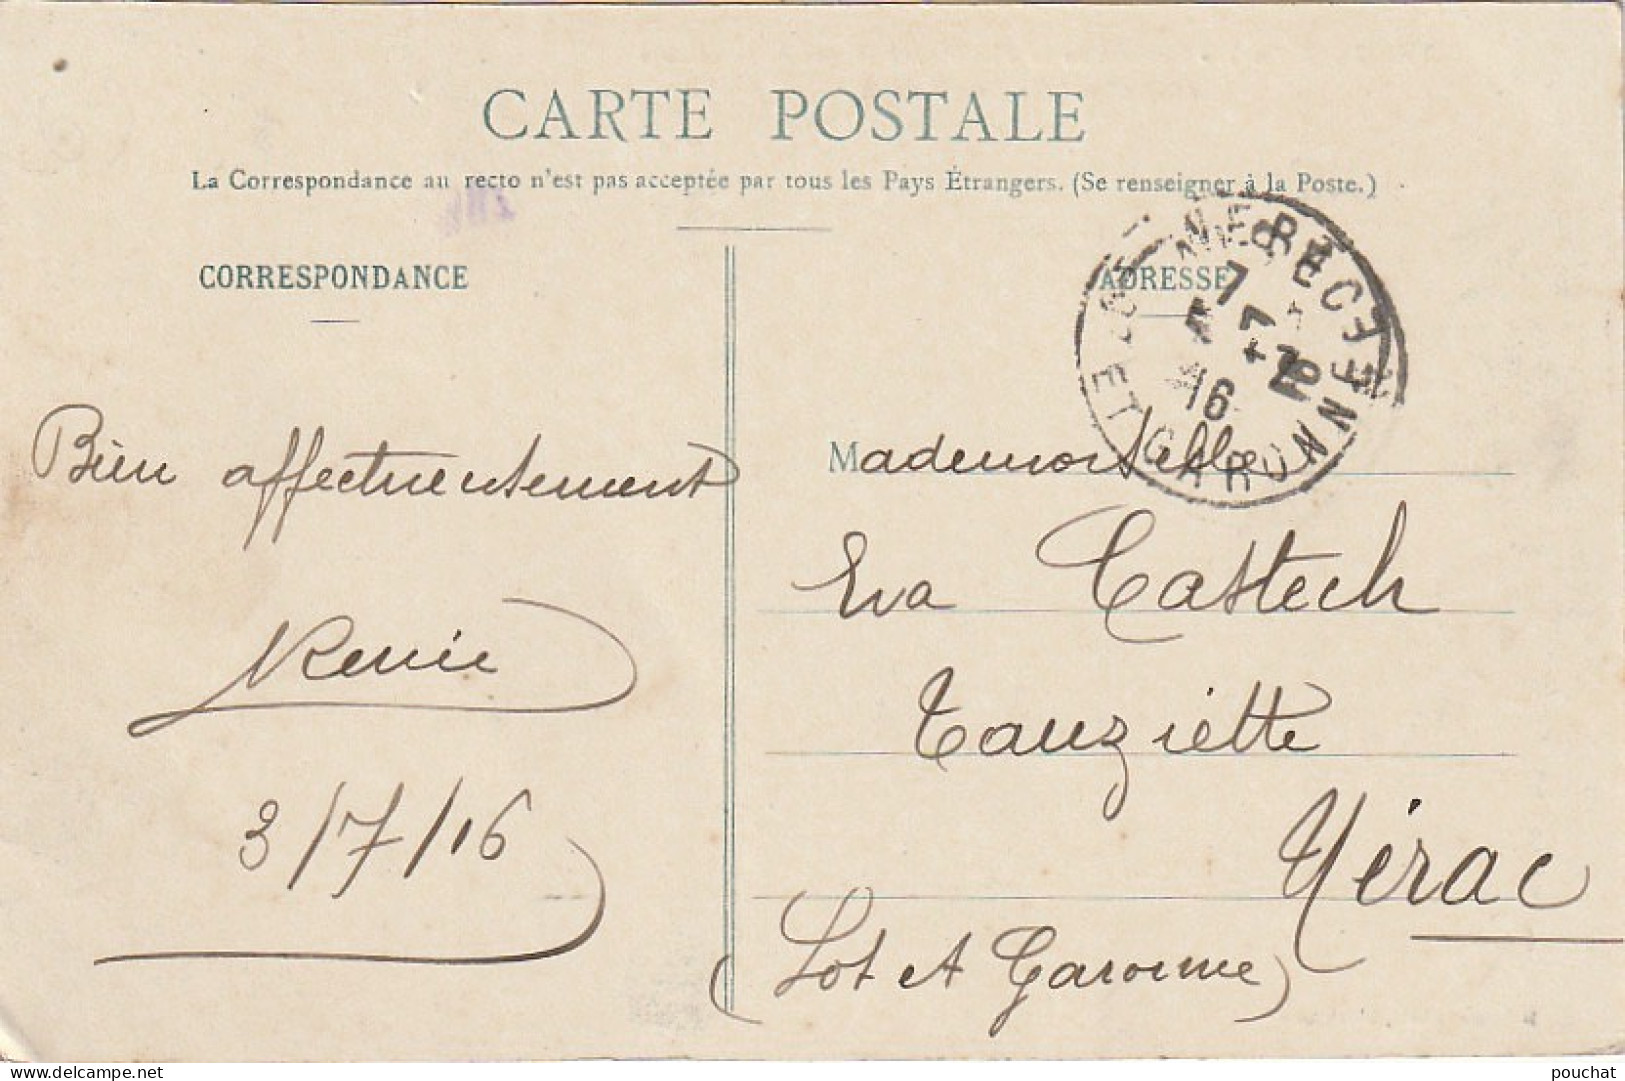 CARTE POSTALE
La Correspondance au recto n'est pas acceptée par tous les Pays Étrangers. (Se renseigner à la Poste.)
CORRESPONDANCE
Bien affectueusement
Renée
3/7/16
ADRESSE
NERAC
7
16
LOT ET GARONNE
Mademoiselle
Eva Castech
Tauziette
Nérac
(Lot et Garonne)
delcampe.net
pouchat